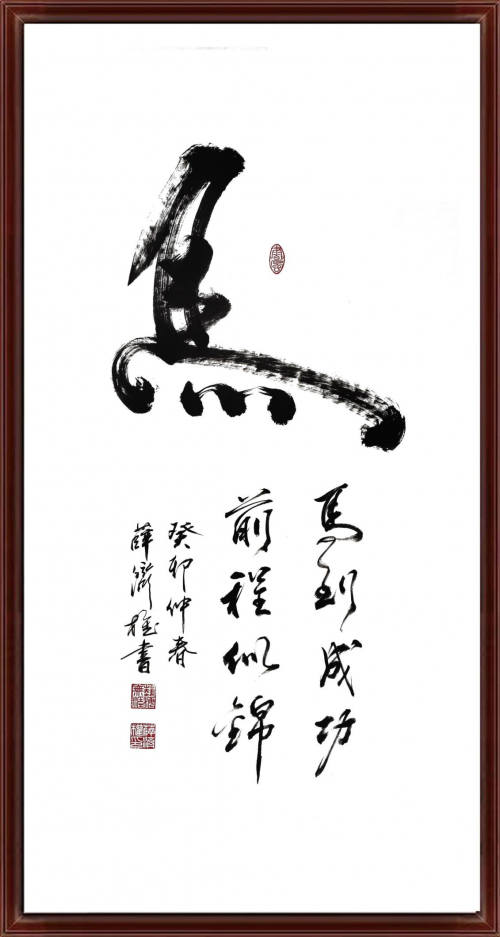 馬
馬到成功
前程似錦
癸卯仲春
薛書